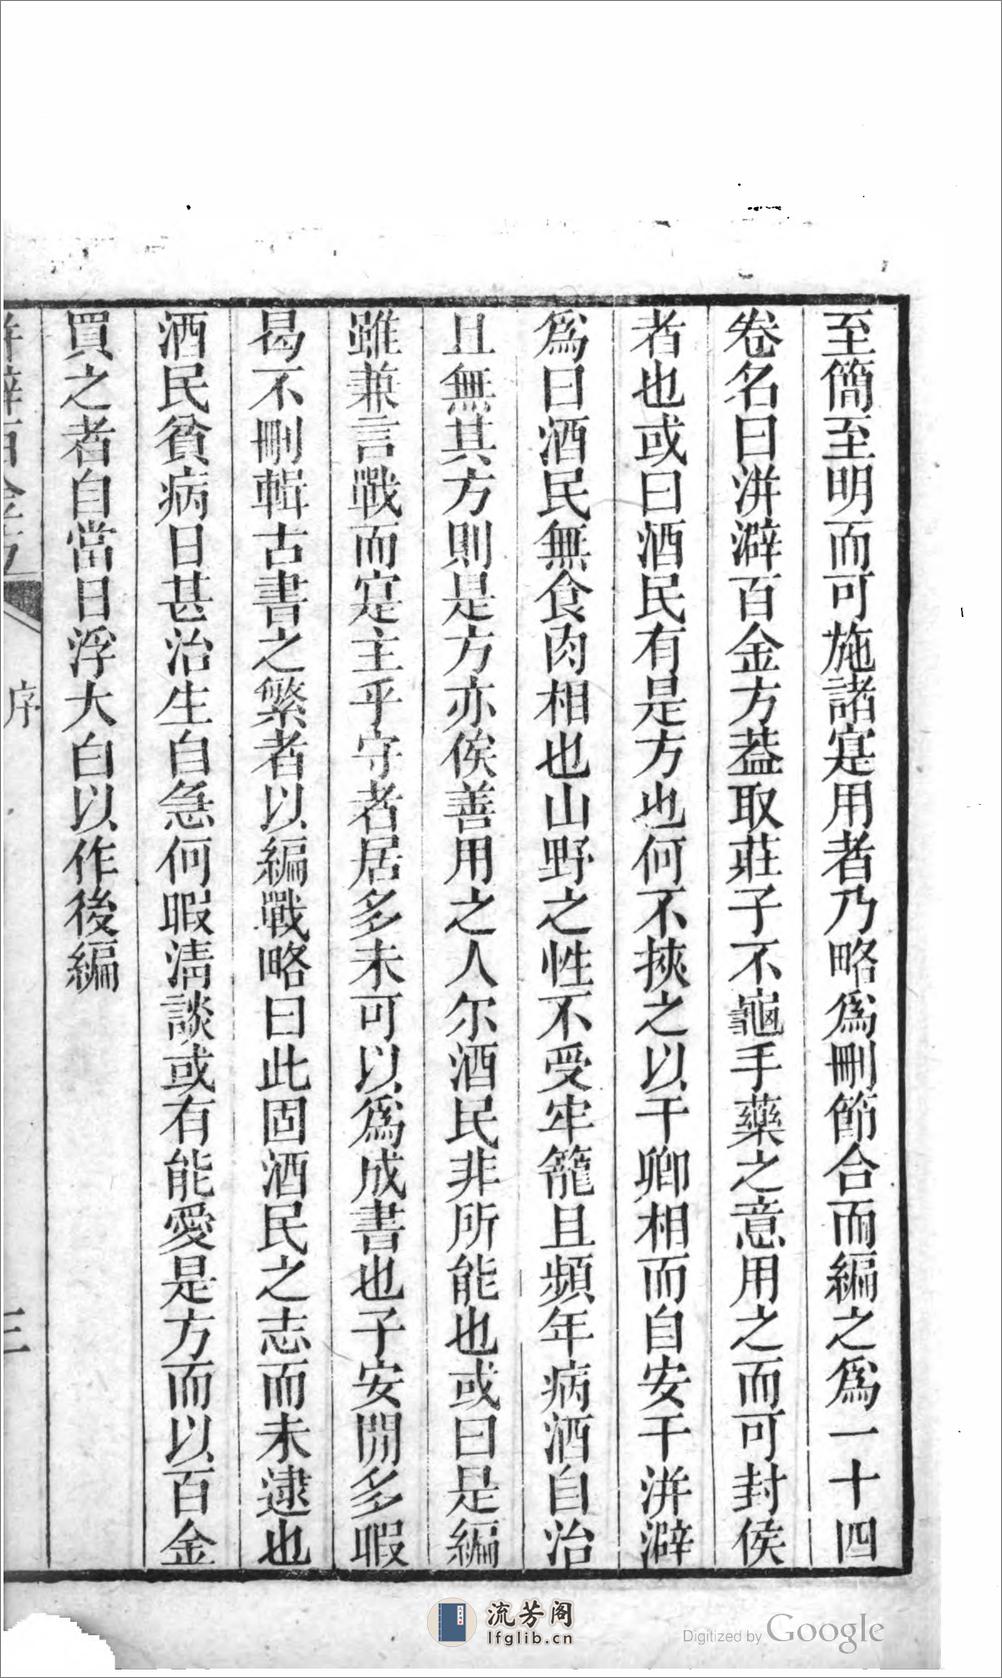 至簡至明而可施諸寔用者乃略爲刪節合而編之爲一十四
卷名曰洴澼百金方葢取莊子不龜手藥之意用之而可封侯
者也或曰酒民有是方也何不挾之以干卿相而自安于洴澼
爲曰酒民無食肉相也山野之性不受牢籠且頻年病酒自治
且無其方則是方亦俟善用之人尔酒民非所能也或曰是編
雖兼言戰而寔主乎守者居多未可以爲成書也子安閒多暇
曷不刪輯古書之繁者以編戰略曰此固酒民之志而未逮也
酒民貧病日甚治生自急何暇淸談或有能愛是方而以百金
買之者自當日浮大白以作後編
洴澼百金方
序
三
流芳阁
lfglib.cn
Digitized by Google